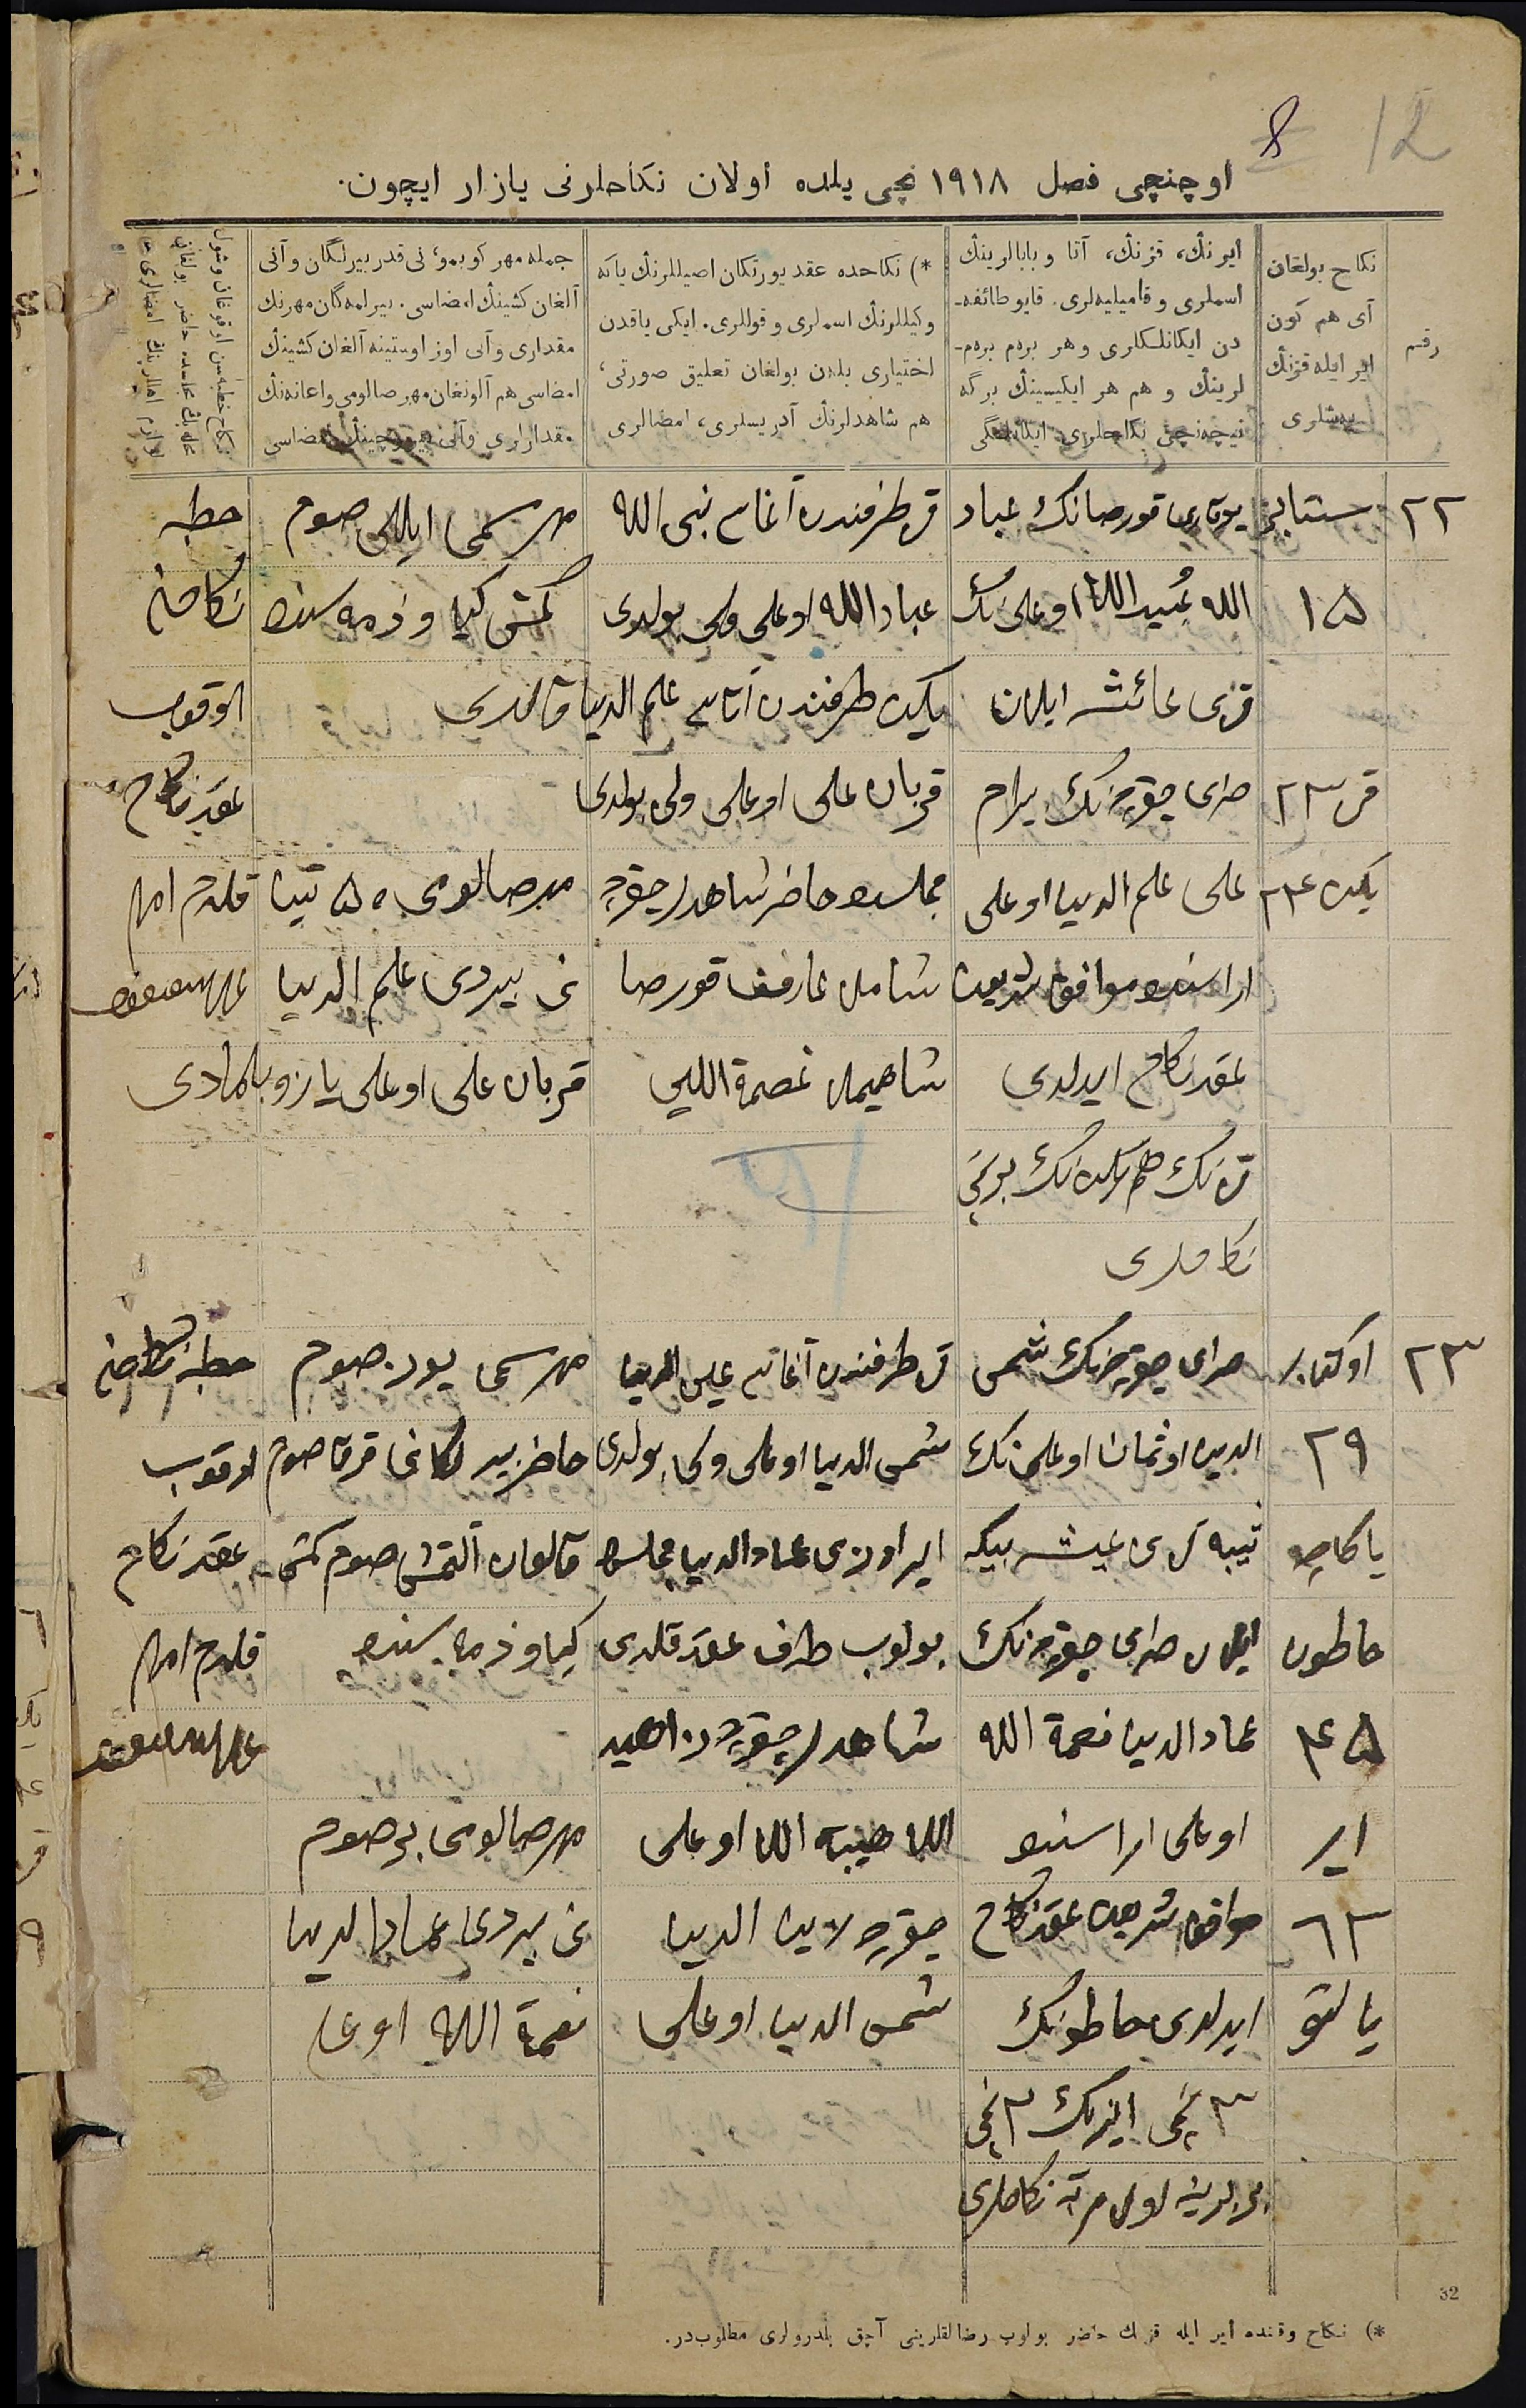 12
8
اوچنچی فصل ١٩١٨ نچی یلده اولان نکاحلرنی یازار ایچون.
رقم
نکاح بولغان
آی هم کون
ایر ایله قزنڭ
یەشلری
ایرنڭ، قزنڭ، آتا و بابالرینڭ
اسملری و فامیلیه‌لری. قایو طائفه‌-
دن ایکانلکلری و هر بردم بردم-
لرینڭ و هم هر ایکیسینڭ برگه
نیچه‌نچی نکاحلری ایکانلگی
*) نکاحده عقد یورتکان اصیللرنڭ یاکه
وکیللرنڭ اسملری و قوللری. ایکی یاقدن
اختیاری بلەن بولغان تعلیق صورتی،
هم شاهدلرنڭ آدریسلری، امضالری
جمله مهر کوبمو، نی قدر بیرلگان و آنی
آلغان کشینڭ امضاسی. بیرلمه‌گان مهرنڭ
مقداری و آنی اوز اوستینه آلغان کشینڭ
امضاسی هم آلونغان مهر صالومی و اعانه‌نڭ
مقدارلری و آنی بیروچینڭ امضاسی
نکاح خطبه‌سن اوقوغان و شول
٢٢
سنتابر
١٥
قز ٢٣
یکت ٢٤
یوقاری قورصانڭ عباد
الله عُبیدالله اوغلی نڭ
قزی عائشه ایلان
صرای چقرچه نڭ بیرام
علی علم الدین اوغلی
اراسنده موافق شریعت
عقد نکاح ایدلدی
قز نڭ هم یکت نڭ برنچی
نکاحلری
قز طرفندن آغاسی نبی الله
عبادالله اوغلی ولی بولدی
یکت طرفندن آتاسی علم الدین
قربان علی اوغلی ولی بولدی
مجلسده حاضر شاهدلر چقرچه
شامل عارف قورصا
شاهیمل عصمة الله
مهر سمی ایللی صوم
کمش کیا و ذمه سنده
قالدی
مهر صالومی ٥٠ تین
نی بیردی علم الدین
قربان علی اوغلی یازو بلمادی
خطبه
نکاحنی
اوقوب
عقد نکاح
قلدم امام
٢٣
اوکتابر
٢٩
یاکاچه
خاطون
٤٥
ایر
٦٣
یالتو
صرای چقرچه نڭ شمس
الدین اوثمان اوغلی نڭ
قزی عیشه بیکه
ایلان صرای چقرچه نڭ
عماد الدین نعمة الله
اوغلی اراسنده
موافق شریعت عقد نکاح
ایدلدی خاطوننڭ
٣ نچی ایرنڭ ٣ نچی
بر برینه اول مرتبه نکاحلری
قز طرفندن آغاسی عین الدین
شمس الدین اوغلی وکیل بولدی
ایر اوزی عماد الدین مجلسده
بولوب طرف عقد قلدی
شاهدلر چقرچه
الله هیبة الله اوغلی
چقرچه الدین
شمس الدین اوغلی
مهر سمی یوز صوم
حاضر بیرلگانی قرق صوم
قالغان آلتمش صوم کمش
کیا و ذمه سنده
مهر صالومی بر صوم
نی بیردی عماد الدین
نعمة الله اوغلی
خطبه نکاحنی
اوقوب
عقد نکاح
قلدم امام
32
*) نکاح وقتنده ایر ایله قزنڭ حاضر بولوب رضالقلرینی آچق بلدرولری مطلوب‌در.